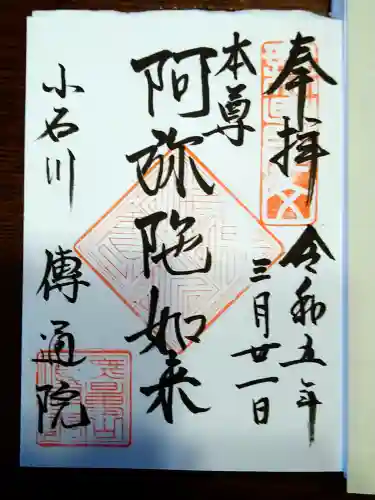 奉拝
令和五年
三月廿一日
本尊
阿弥陀如来
小石川
傳通院